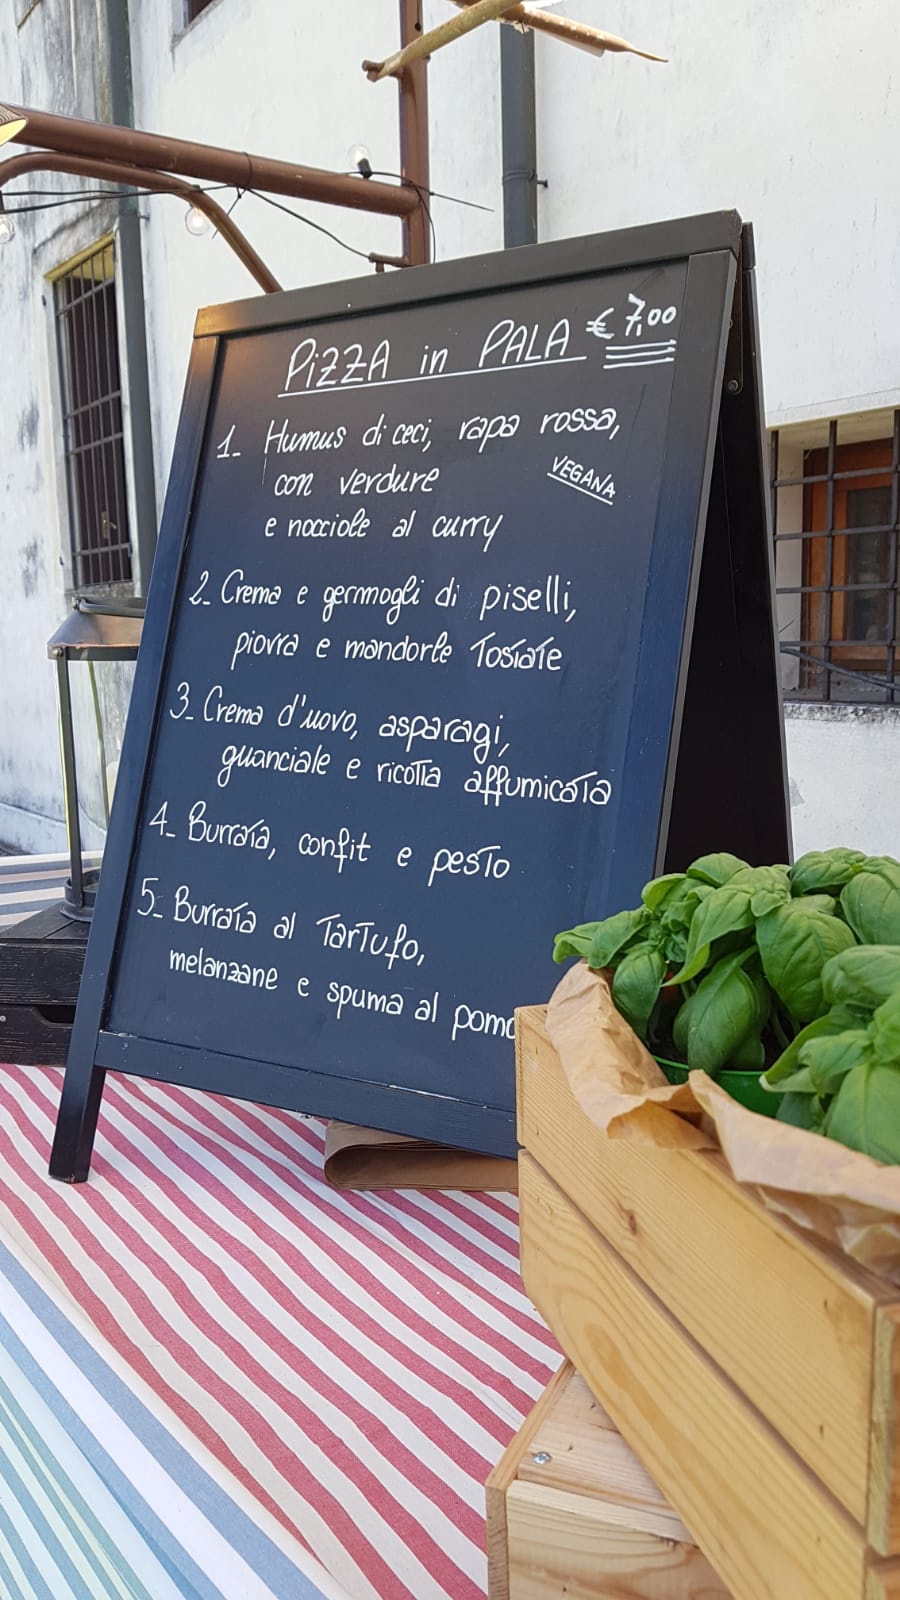 PIZZA in PALA € 7,00
1_ Humus di ceci, rapa rossa,
con verdure
VEGANA
e nocciole al curry
2_ Crema e germogli di piselli,
piovra e mandorle tostate
3_ Crema d'uovo, asparagi,
guanciale e ricotta affumicata
4_ Burrata, confit e pesto
5_ Burrata al Tartufo,
melanzane e spuma al